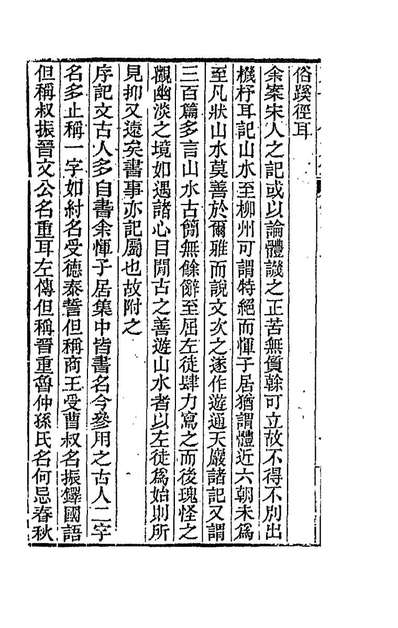 俗蹊徑耳
余案宋人之記或以論體譏之正苦無質榦可立故不得不別出
機杼耳記山水至柳州可謂特絕而惲子居猶謂體近六朝未爲
至凡狀山水莫善於爾雅而說文次之遂作遊通天巖諸記又謂
三百篇多言山水古簡無餘辭至屈左徒肆力寫之而後瑰怪之
觀幽淡之境如遇諸心目閒古之善遊山水者以左徒爲始則所
見抑又遠矣書事亦記屬也故附之
序記文古人多自書余惲子居集中皆書名今參用之古人二字
名多止稱一字如紂名受德泰誓但稱商王受曹叔名振鐸國語
但稱叔振晉文公名重耳左傳但稱晉重魯仲孫氏名何忌春秋